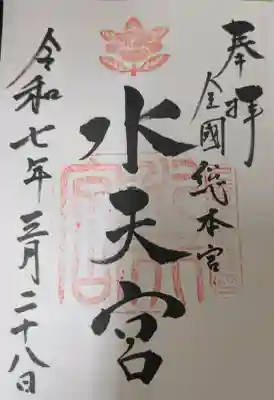 奉拝
全國総本宮
水天宮
令和七年三月二十八日